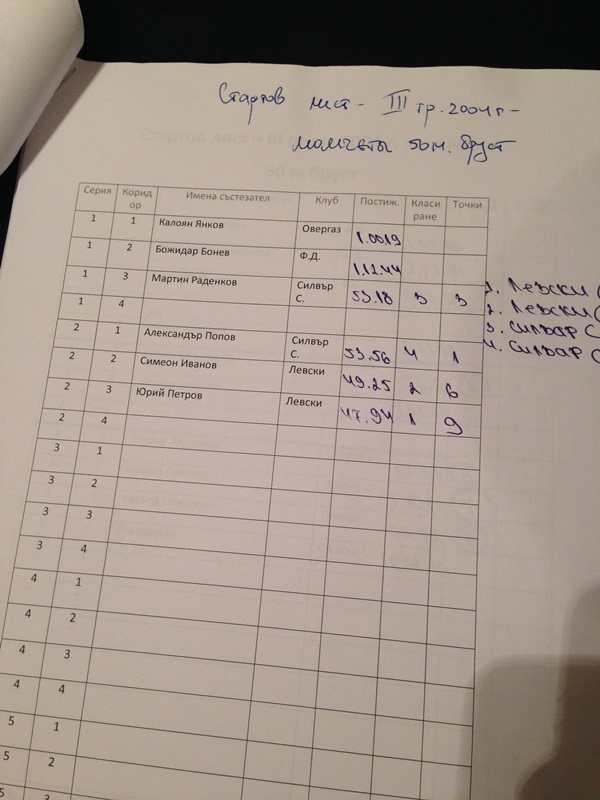 Стартов лист - III гр. 2004г -
момчета 50м. бруст
Серия Коридор Имена състезател Клуб Постиж. Класиране Точки
1 1 Калоян Янков Овергаз 1.0019
1 2 Божидар Бонев Ф.Д. 1.12.44
1 3 Мартин Раденков Силвър С. 53.18 3 3
1 4
2 1 Александър Попов Силвър С. 53.56 4 1
2 2 Симеон Иванов Левски 49.25 2 6
2 3 Юрий Петров Левски 47.94 1 9
2 4
3 1
3 2
3 3
3 4
4 1
4 2
4 3
4 4
5 1
5 2
5 3
1. Левски (
2. Левски (
3. Силвър С
4. Силвър С